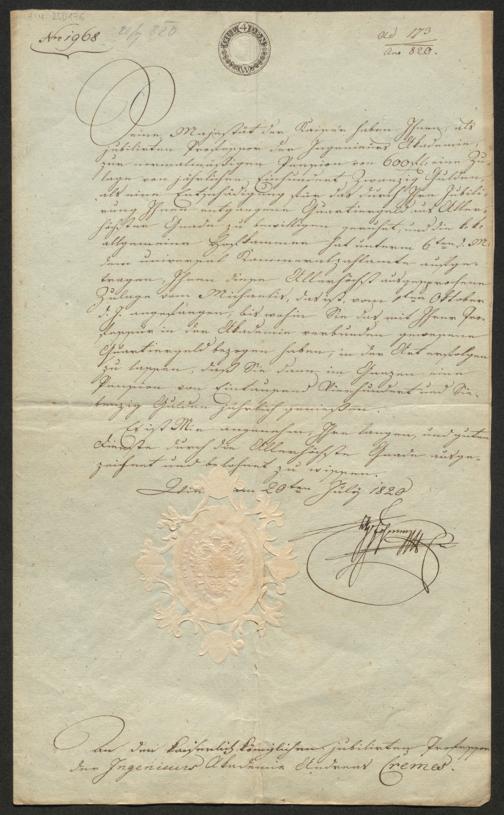 Nro 1968.
ad 173
Ans 820.
Seine Majestät der Kaiser haben Ihnen, als
jubilirten Professor der Ingenieurs Akademie,
zur normalmäßigen Pension von 600 eine Zu-
lage von jährlichen Einhundert Zwanzig Gulden
als eine Entschädigung für das durch Ihre Jubili-
rung Ihnen entgangene Quartiergeld aus Aller-
höchster Gnade zu bewilligen geruht, und die k. k.
allgemeine Hofkammer hat unterm 6ten d. M.
dem universal Kammeralzahlamte aufge-
tragen, Ihnen diese Allerhöchst ausgesprochene
Zulage vom Michaelis, das ist, vom Oktober
d. J. angefangen, bis wohin Sie das mit Ihrer Pro-
fessur in der Akademie verbunden gewesene
Quartiergeld bezogen haben, in der Art erfolgen
zu lassen, daß Sie dann im Ganzen eine
Pension von Eintausend Vierhundert und Sie-
benzig Gulden jährlich genießen.
Es ist Mir angenehm, Ihre langen, und guten
Dienste durch die Allerhöchste Gnade ausge-
zeichnet und belohnet zu wissen.
Wien am 20ten July 1820
An den kaiserlich königlichen jubilirten Professor
der Ingenieurs Akademie Andreas Cremes.